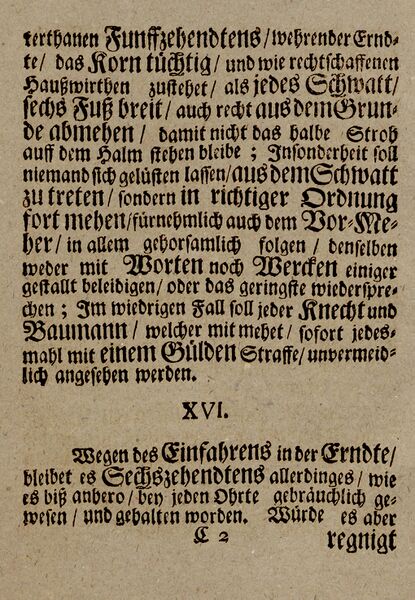 terthanen Funffzehendtens / wehrender Ernd-
te / das Korn tüchtig / und wie rechtschaffenen
Haußwirthen zustehet / als jedes Schwatt /
sechs Fuß breit / auch recht aus dem Grun-
de abmehen / damit nicht das halbe Stroh
auff dem Halm stehen bleibe ; Insonderheit soll
niemand sich gelüsten lassen / aus dem Schwatt
zu treten / sondern in richtiger Ordnung
fort mehen / fürnehmlich auch dem Vor-Me-
her / in allem gehorsamlich folgen / denselben
weder mit Worten noch Wercken einiger
gestallt beleidigen / oder das geringste wiederspre-
chen ; Im wiedrigen Fall soll jeder Knecht und
Baumann / welcher mit mehet / sofort jedes-
mahl mit einem Gülden Straffe / unvermeid-
lich angesehen werden.
XVI.
Wegen des Einfahrens in der Erndte /
bleibet es Sechszehendtens allerdinges / wie
es biß anhero / bey jeden Ohrte gebräuchlich ge-
wesen / und gehalten worden. Würde es aber
C 2 regnigt